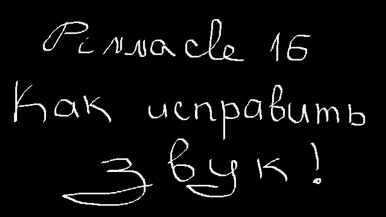 Pinnacle 16
Как исправить
звук!